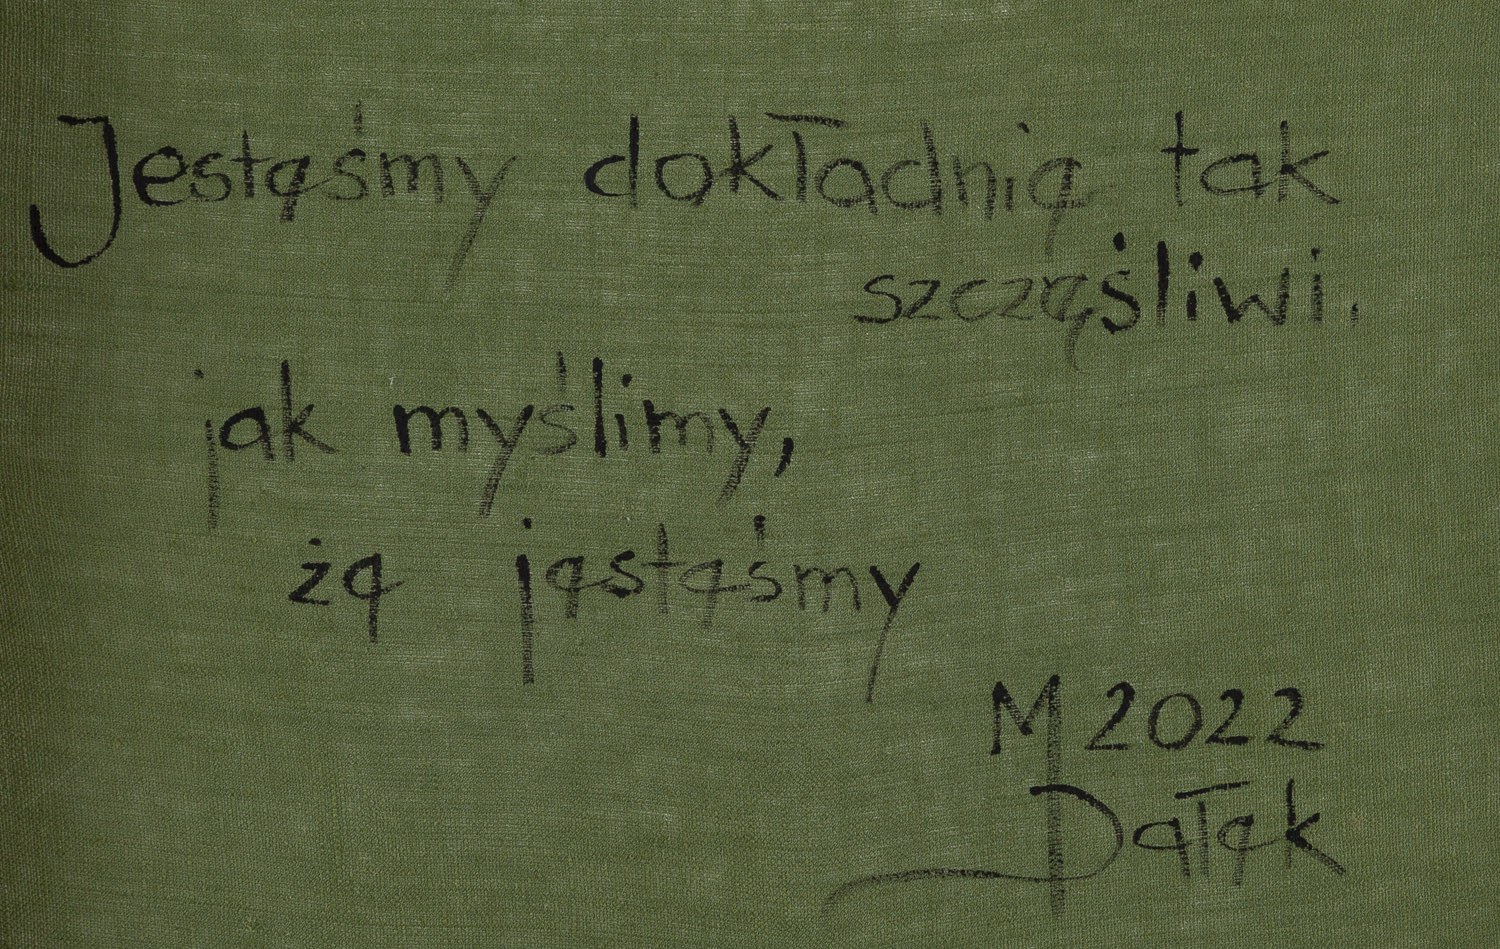 Jestęśmy dokładnię tak
szczęśliwi.
jak myślimy,
żę jęstęśmy
M 2022
Dałęk